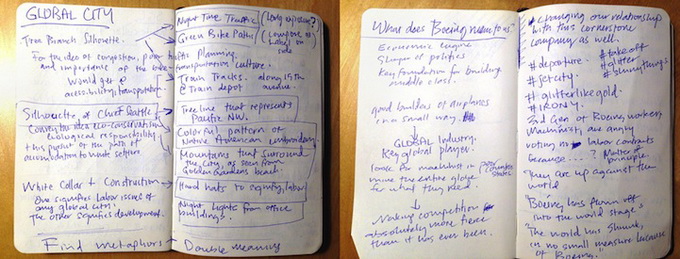 GLOBAL CITY
Tree Branch Silhouette.
For the idea of congestion, poor
and importance of the
would get @
accessibility/transportation.
Silhouette of Chief Seattle
Convey the idea eco-conservation,
biological responsibility,
this pursuit of the path of
accumulation to white settlers
White Collar + Construction
One signifies labor issues of
any global city.
The other signifies development.
Find metaphors
Night Time Traffic (Long exposure?)
Green Bike Paths (Compose #)
Label on side
planning.
transportation culture.
Train Tracks. along 15th
@ Train depot avenue.
Tree line that represents
Pacific NW.
Colorful pattern of
Native American embroidery
Mountains that surround
the City, as seen from
Golden Gardens beach
Hard hats to signify labor
Night Lights from office
buildings.
Double meaning
What does Boeing mean to us?
Economic engine
Shaper of politics
Key foundation for building
middle class.
good builders of airplanes
in a small way.
GLOBAL Industry.
Key global player.
the entire globe
for what they need.
Making competition
absolutely more fierce
than it has ever been.
Changing our relationship
with this cornerstone
company as well.
#departure. #takeoff
#jetcity. #glitter
#shinythings
#glitterlikegold.
#IRONY.
3rd Gen of Boeing workers,
Machinists are angry
voting no labor contracts
because...? Matter of
principle.
They are up against the
world
"Boeing has flown off
into the world stage"
"The world has shrunk,
in no small measure because
of Boeing."